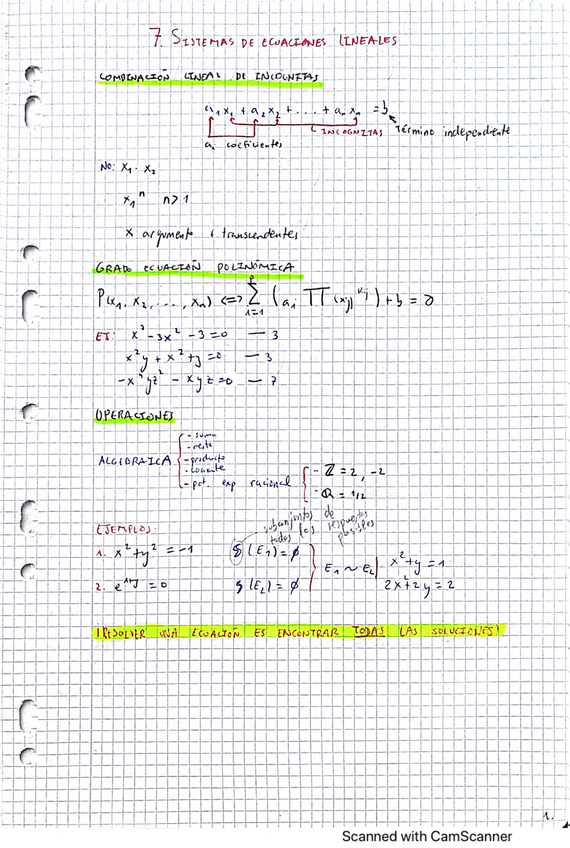 7. SISTEMAS DE ECUACIONES LINEALES
COMBINACIÓN LINEAL DE INCOGNITAS
a₁x₁ + a₂x₂ + . . . + aₙxₙ = b
INCOGNITAS
término independiente
aᵢ coeficientes
NO: x₁ · x₂
x₁ⁿ n>1
x argumento f transcendentes
GRADO ECUACIÓN POLINÓMICA
P(x₁, x₂, ..., xₙ) <=> Σ i=1 (aᵢ ∏ (xⱼ)^kⱼ) + b = 0
EJ: x³ - 3x² - 3 = 0 — 3
x²y + x² + y = 0 — 3
-x³yz² - xyz = 0 — 7
OPERACIONES
ALGEBRAICA
- suma
- resta
- producto
- cociente
- pot. exp racional
- ℤ = 2, -2
- ℚ = 1/2
EJEMPLOS:
subconjuntos de
todas las respuestas
posibles
1. x² + y² = -1 S(E₁) = ∅
2. e^x+y = 0 S(E₂) = ∅
E₁ ~ E₂
x² + y = 1
2x² + 2y = 2
¡RESOLVER UNA ECUACIÓN ES ENCONTRAR TODAS LAS SOLUCIONES!
1.
Scanned with CamScanner